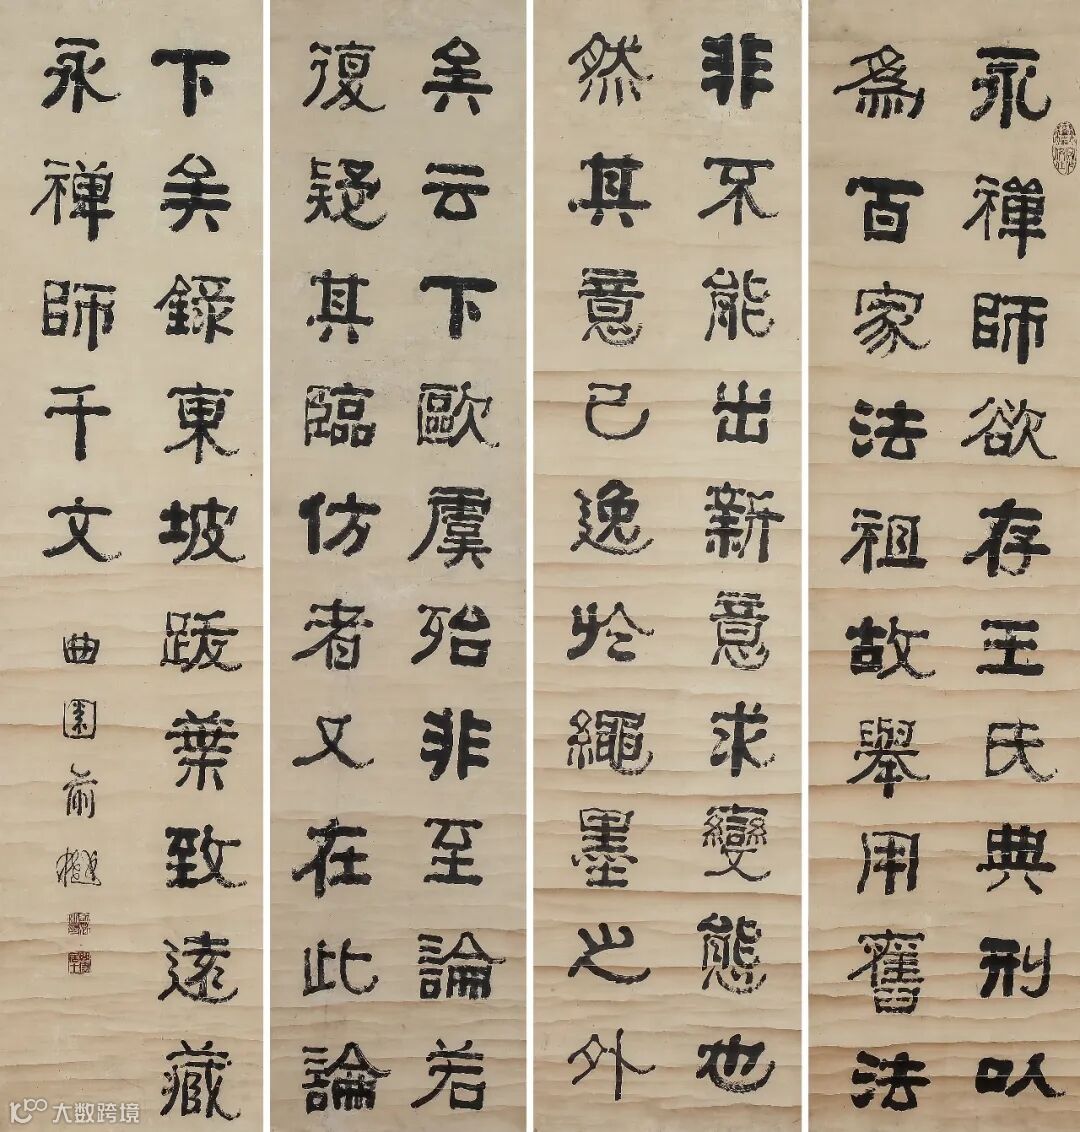 永禪師欲存王氏典刑以
為百家法祖故舉用舊法
非不能出新意求變態也
然其意已逸於繩墨之外
矣云下歐虞殆非至論若
復疑其臨仿者又在此論
下矣錄東坡跋葉致遠藏
永禪師千文
曲園俞樾
大数跨境